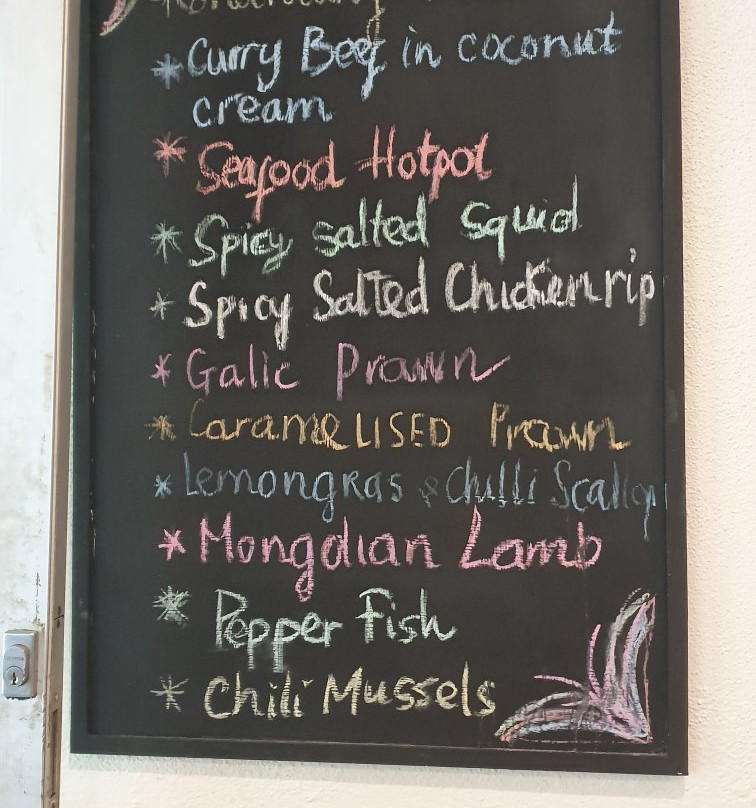 * Curry Beef in coconut
cream
* Seafood Hotpot
* Spicy salted Squid
* Spicy Salted Chicken rip
* Galic Prawn
* CaramelISED Prawn
* Lemongras & Chilli Scallop
* Mongolian Lamb
* Pepper Fish
* Chili Mussels